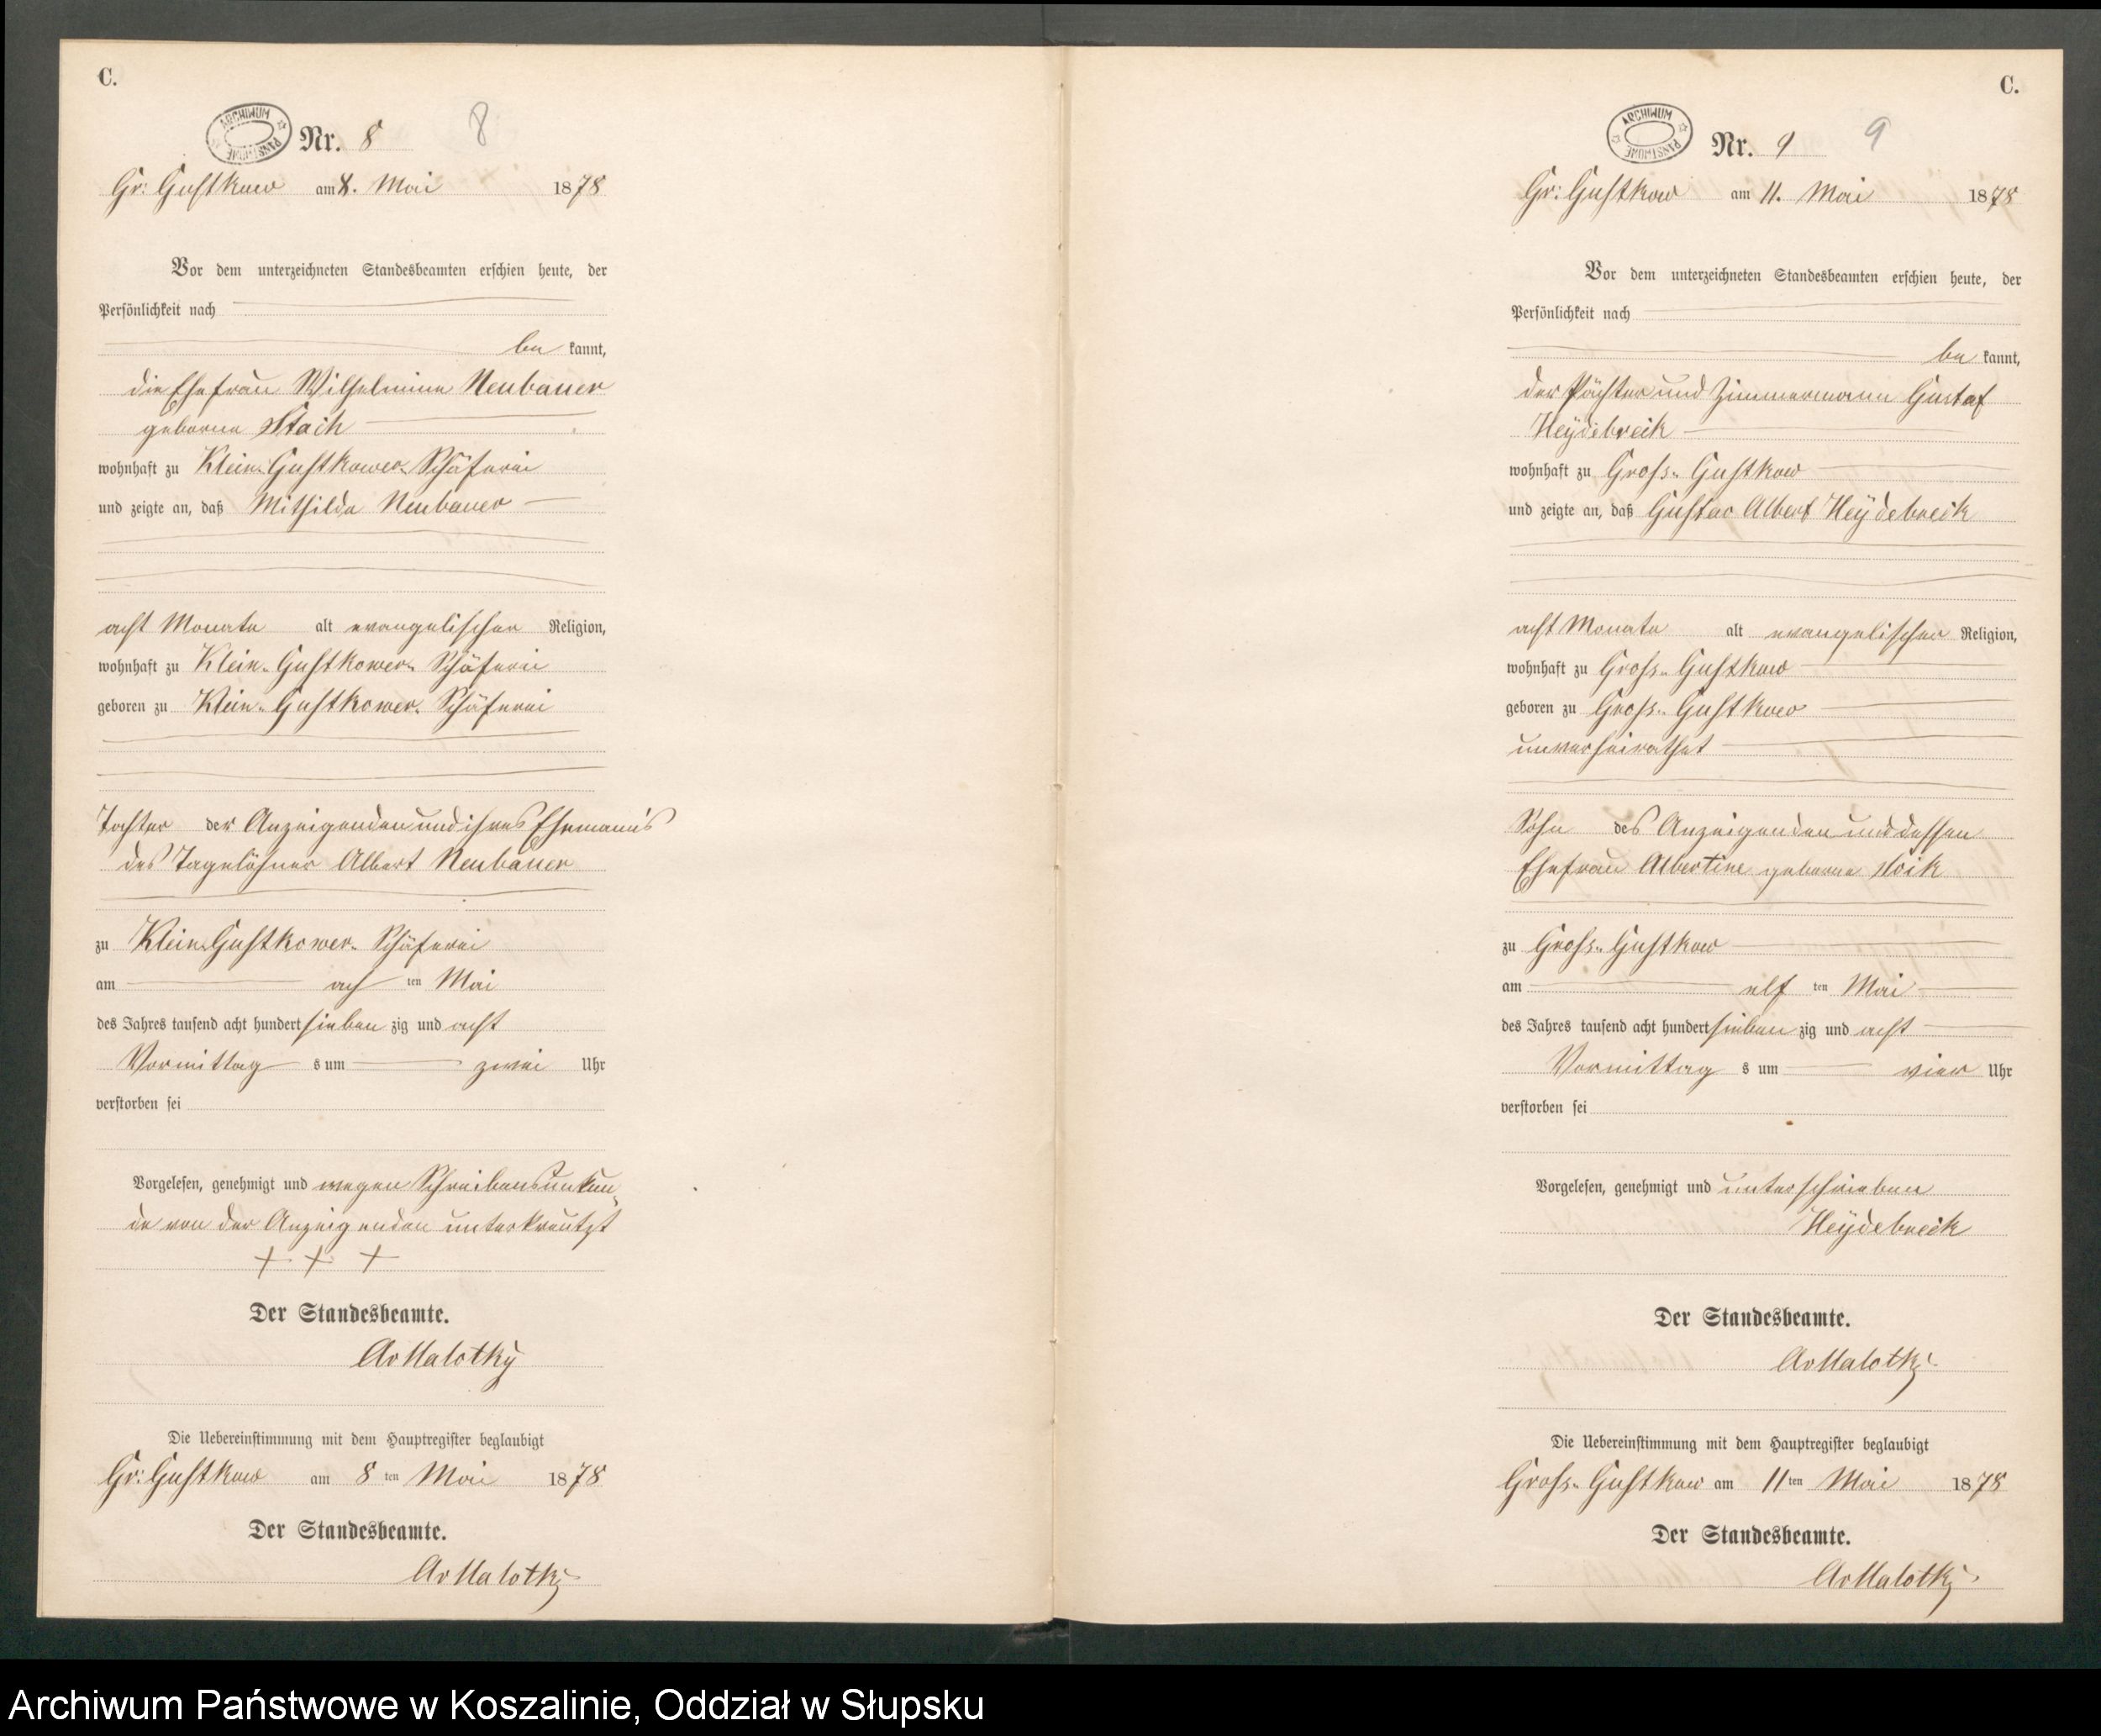 C.
ARCHIWUM PAŃSTWOWE
Nr. 8
8
Gr: Gustkow am 8. Mai 1878
Vor dem unterzeichneten Standesbeamten erschien heute, der
Persönlichkeit nach
be kannt,
die Ehefrau Wilhelmine Neubauer
geborne Stach
wohnhaft zu Klein-Gustkower-Schäferei
und zeigte an, daß Mathilde Neubauer
acht Monate alt evangelischer Religion,
wohnhaft zu Klein-Gustkower-Schäferei
geboren zu Klein-Gustkower-Schäferei
Tochter der Anzeigenden und ihres Ehemanns
des Tagelöhner Albert Neubauer
zu Klein-Gustkower-Schäferei
am ach ten Mai
des Jahres tausend acht hundert sieben zig und acht
Vormittag s um zwei Uhr
verstorben sei
Vorgelesen, genehmigt und wegen Schreibensunkun-
de von der Anzeigenden unterkreutzt
+ + +
Der Standesbeamte.
AvMalotky
Die Uebereinstimmung mit dem Hauptregister beglaubigt
Gr: Gustkow am 8 ten Mai 1878
Der Standesbeamte.
AvMalotky
C.
ARCHIWUM PAŃSTWOWE
Nr. 9
9
Gr: Gustkow am 11. Mai 1878
Vor dem unterzeichneten Standesbeamten erschien heute, der
Persönlichkeit nach
be kannt,
der Pächter und Zimmermann Gustaf
Heydebreck
wohnhaft zu Gross-Gustkow
und zeigte an, daß Gustav Albert Heydebreck
acht Monate alt evangelischer Religion,
wohnhaft zu Gross-Gustkow
geboren zu Gross-Gustkow
unverheirathet
Sohn des Anzeigenden und dessen
Ehefrau Albertine geborne
zu Gross-Gustkow
am elf ten Mai
des Jahres tausend acht hundert sieben zig und acht
Vormittag s um vier Uhr
verstorben sei
Vorgelesen, genehmigt und unterschrieben
Heydebreck
Der Standesbeamte.
AvMalotky
Die Uebereinstimmung mit dem Hauptregister beglaubigt
Gross-Gustkow am 11 ten Mai 1878
Der Standesbeamte.
AvMalotky
Archiwum Państwowe w Koszalinie, Oddział w Słupsku